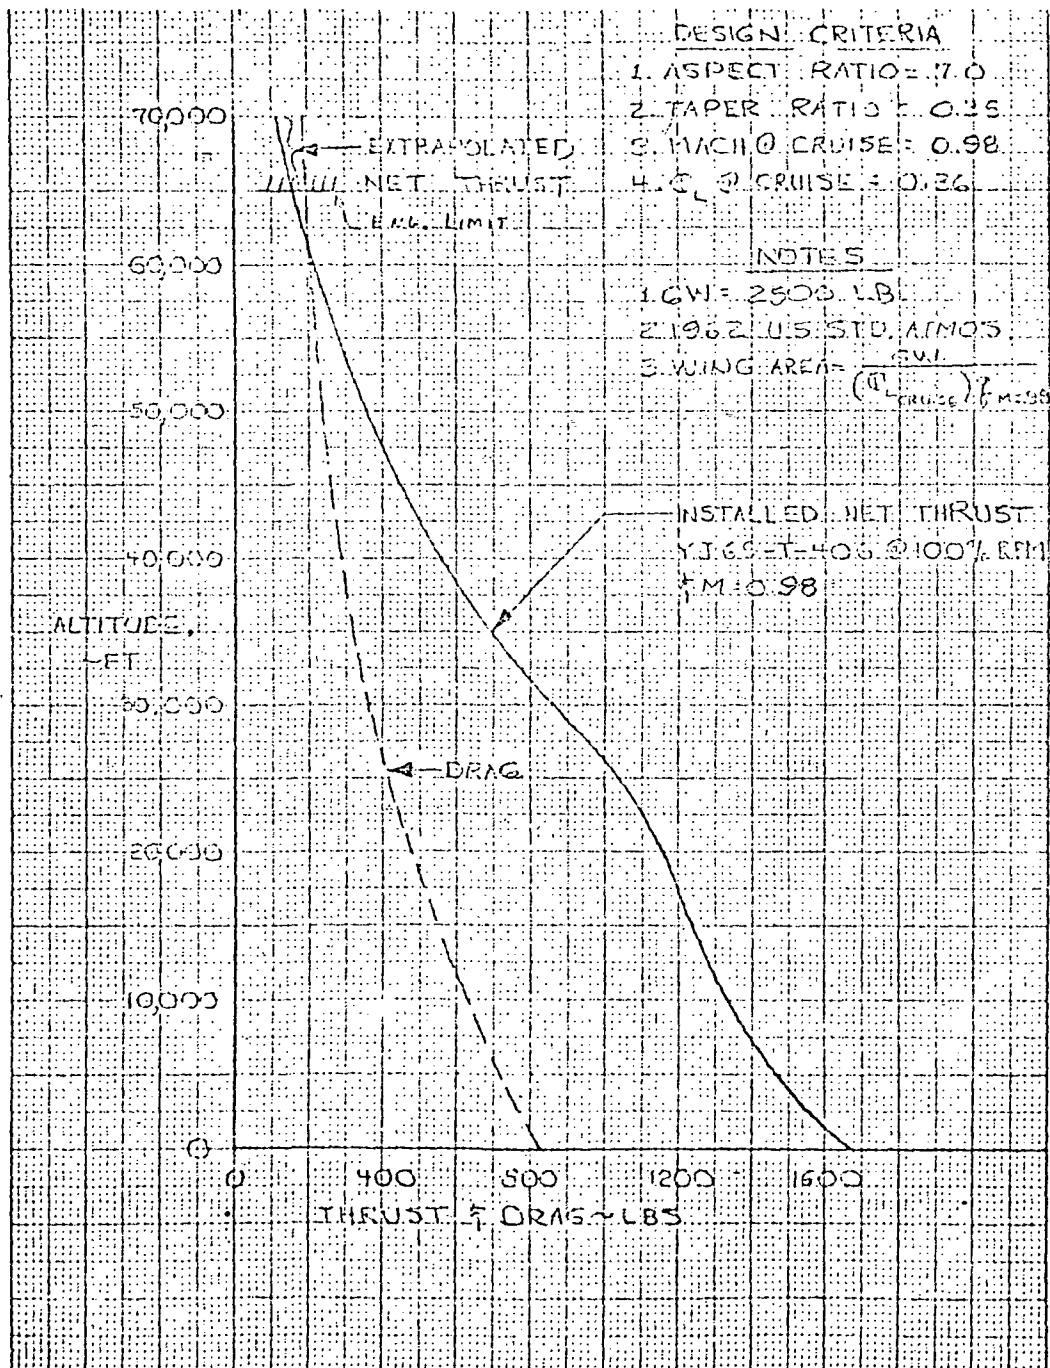 DESIGN CRITERIA
1. ASPECT RATIO = 7.0
2. TAPER RATIO = 0.35
3. MACH @ CRUISE = 0.98
4. CL @ CRUISE = 0.36
NOTES
1. GW = 2500 LB
2. 1962 U.S. STD. ATMOS.
3. WING AREA = GW / (CL CRUISE) M=.98
70,000
EXTRAPOLATED
NET THRUST
ENG. LIMIT
60,000
50,000
INSTALLED NET THRUST
YJ69-T-406 @ 100% RPM
& M = 0.98
40,000
ALTITUDE,
~FT
30,000
DRAG
20,000
10,000
0
0 400 800 1200 1600
THRUST & DRAG ~ LBS